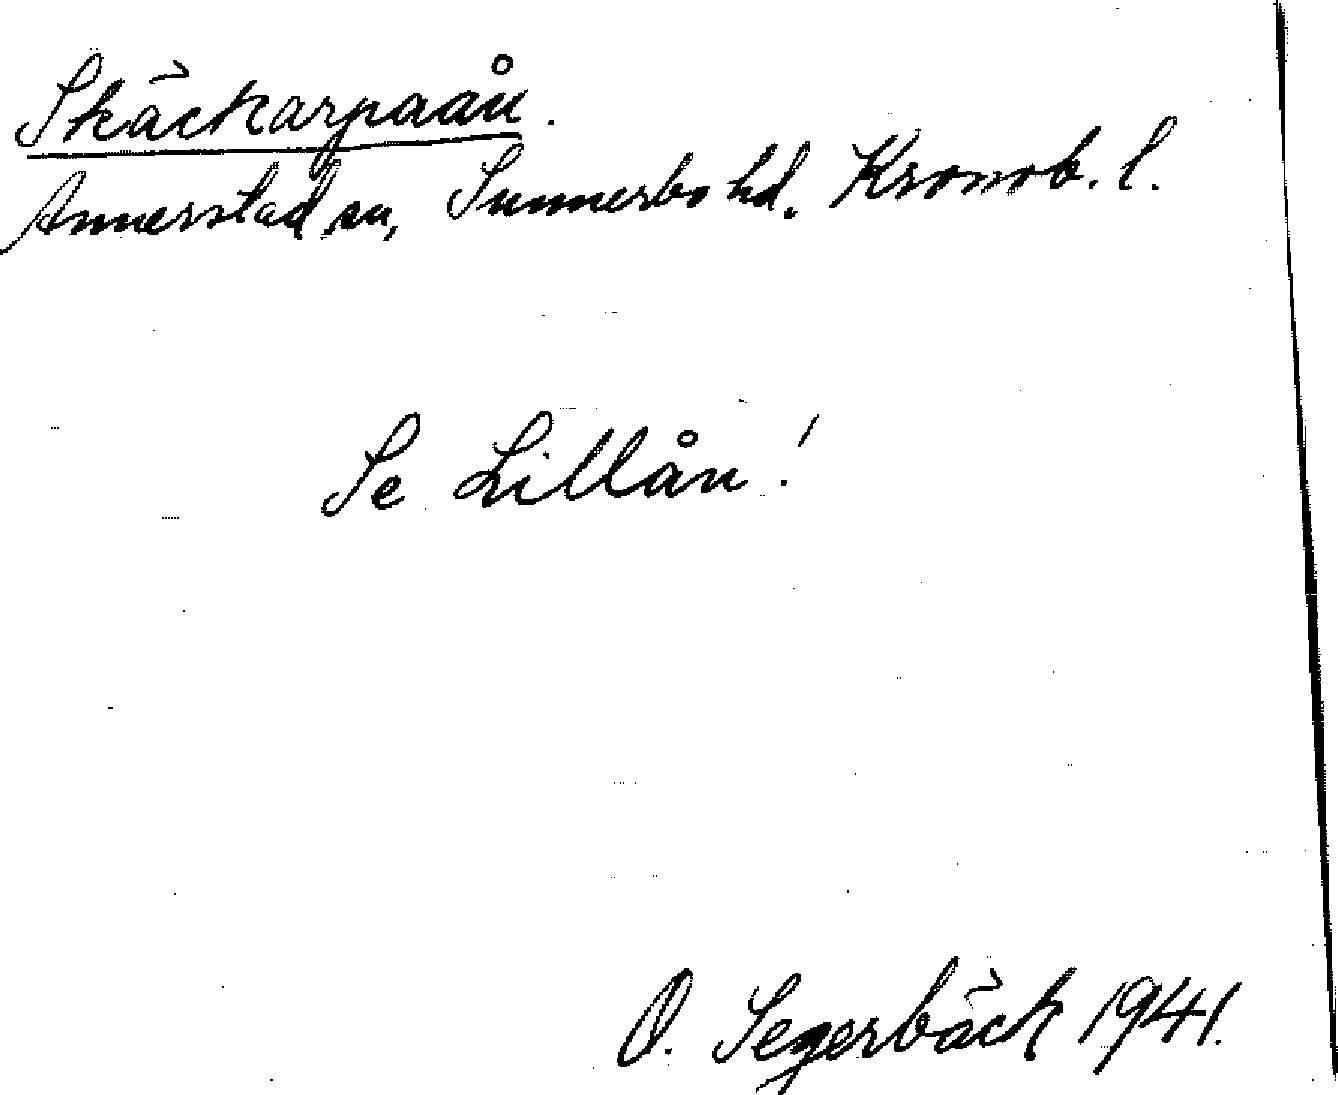 Skäckarpaån.
Annerstad sn, Sunnerbo hd. Kronob. l.
Se Lillån!
O. Segerbäck 1941.